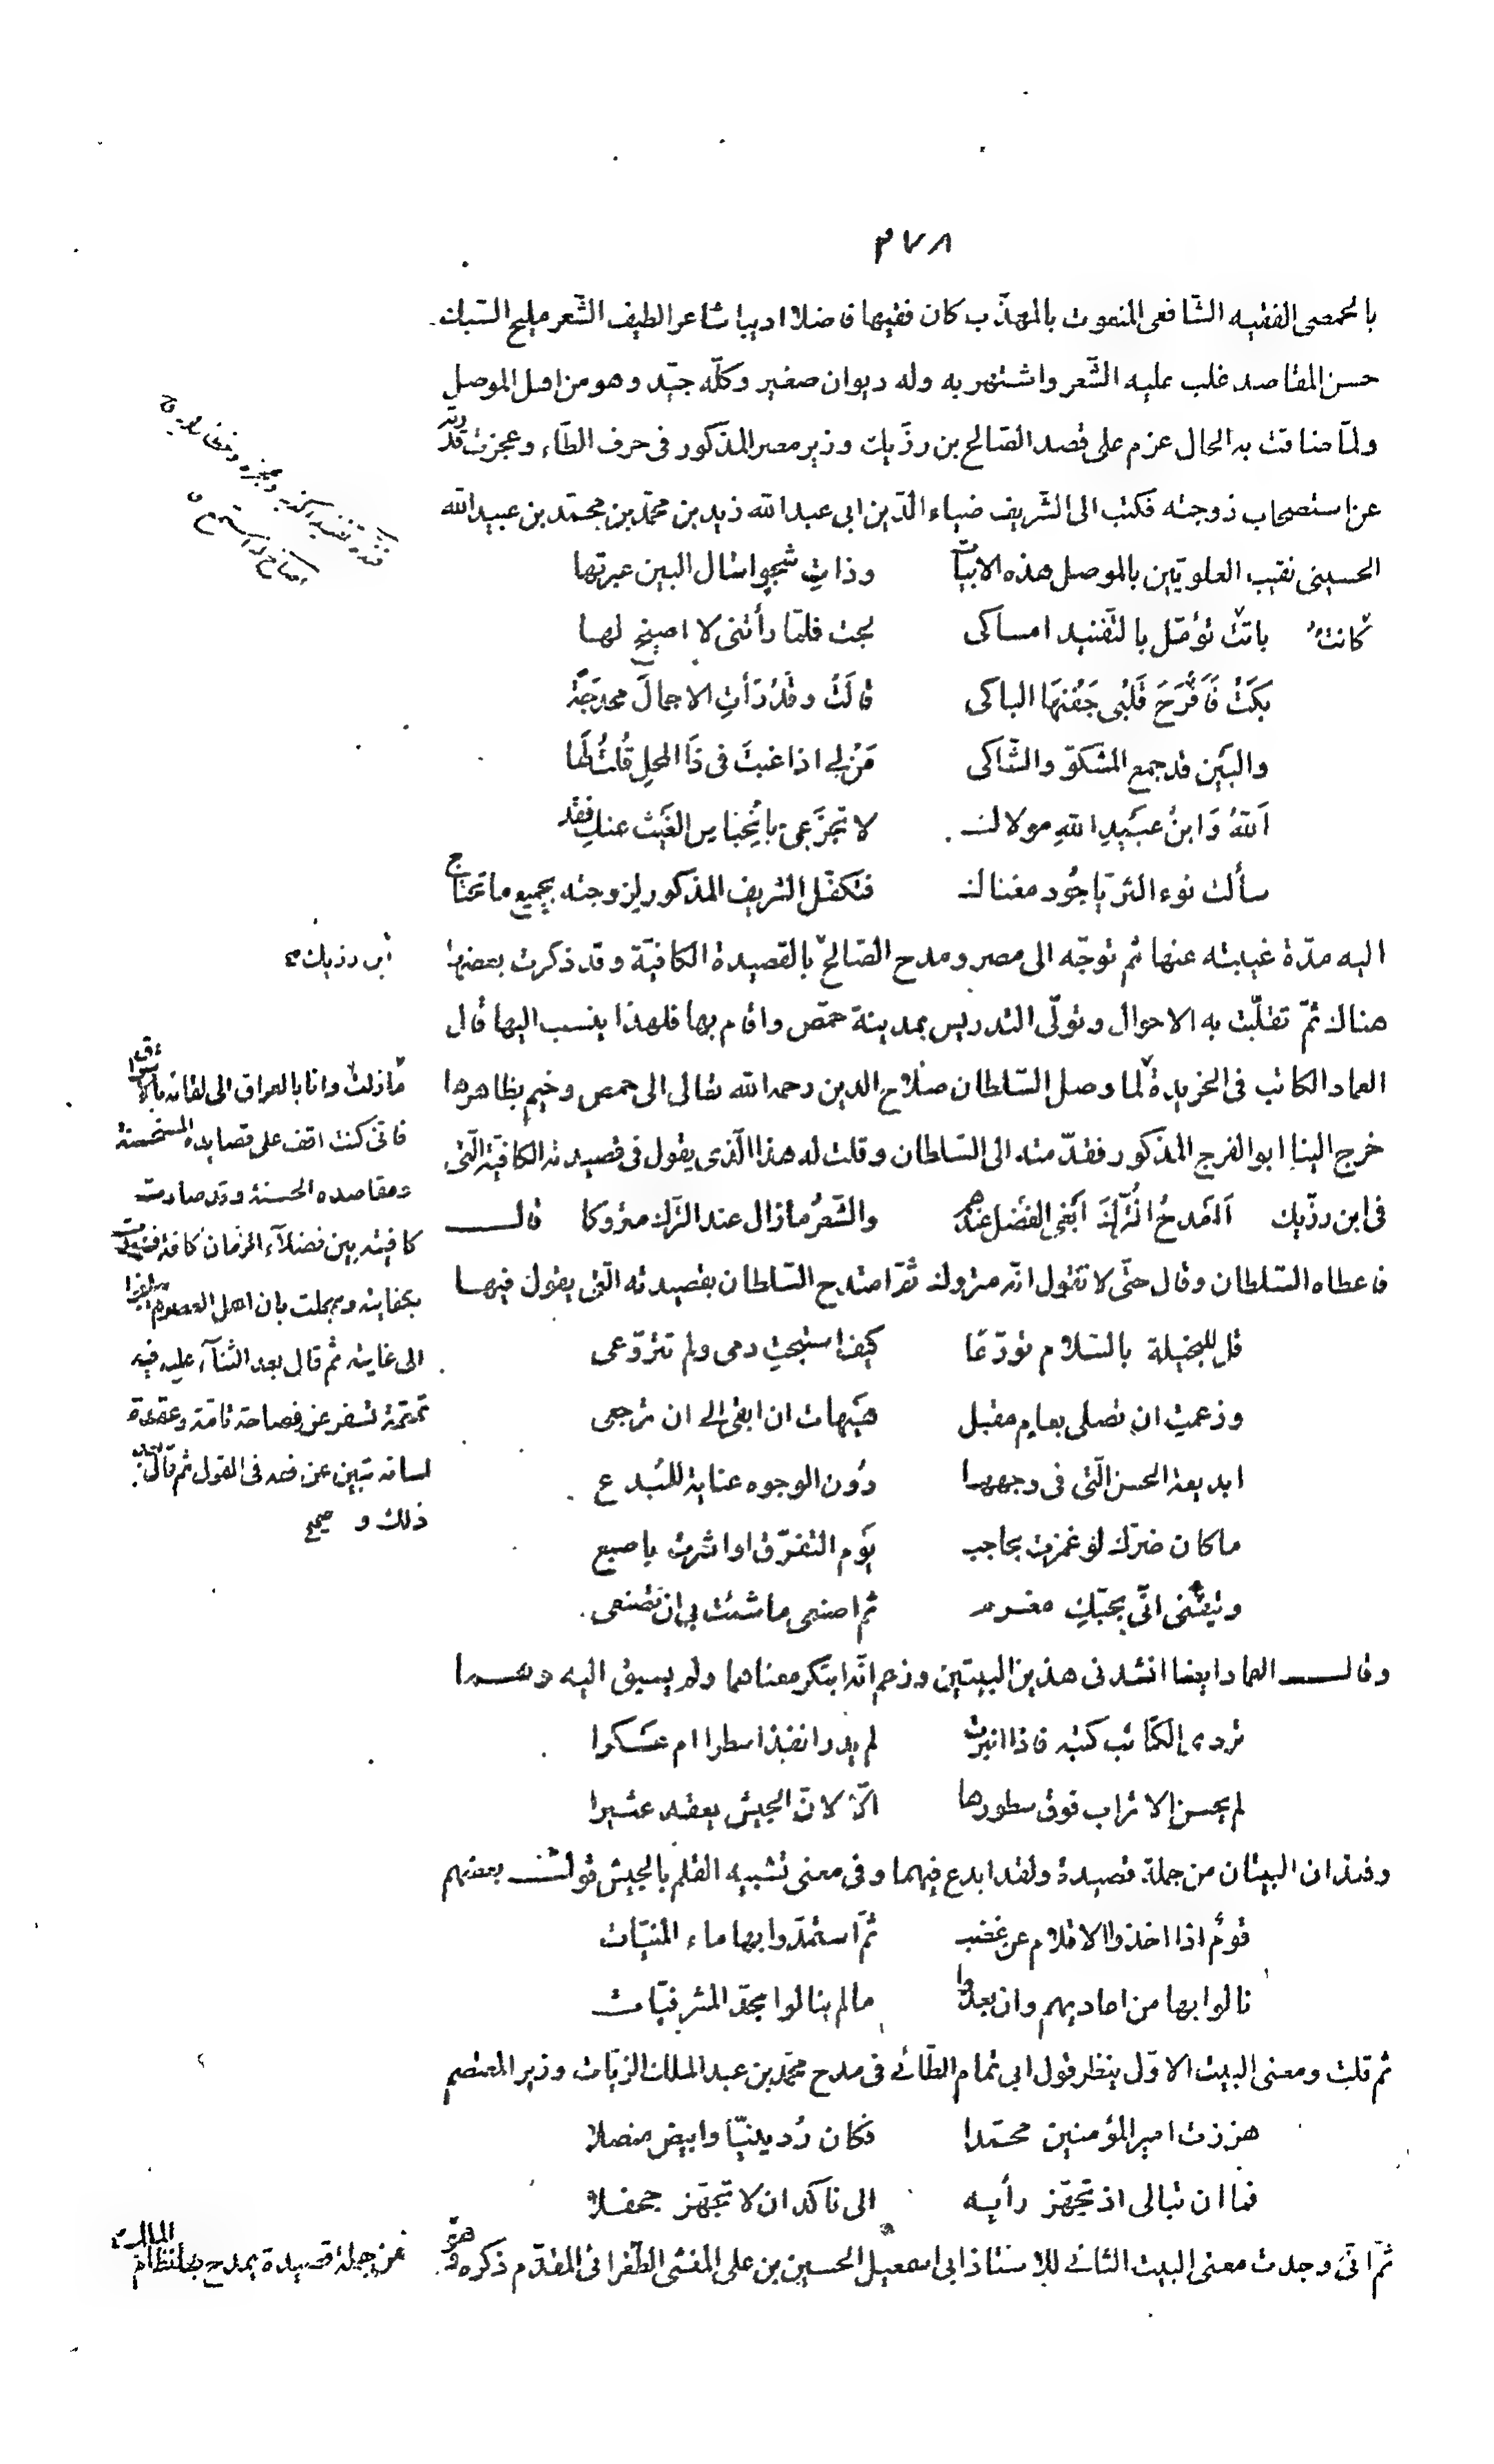 ٣٧٨
بالحمصى الفقيه الشّافعى المنعوت بالمهذّب كان فقيها فاضلا اديبا شاعرا لطيف الشّعر مليح السّبك
حسن المقاصد غلب عليه الشّعر واشتهر به وله ديوان صغير وكلّه جيّد وهو من اهل الموصل
ولمّا ضاقت به الحال عزم على قصد الصّالح بن رزّيك وزير مصر المذكور فى حرف الطّاء وعجزت قدرته
عن استصحاب زوجته فكتب الى الشّريف ضياء الدّين ابى عبد الله زيد بن محمّد بن محمّد بن عبيد الله
الحسينى نقيب العلويّين بالموصل هذه الابيات وذاتِ شجوٍ اسال البين عبرتها
كانت باتتْ تؤمّل بالتّفنيد امساكى لجت فلمّا رأتنى لا اصيخ لها
بَكَتْ فَاَقْرَحَ قَلْبى جَفْنهَا الباكى قالَتْ وقَدْ رَأتِ الاجمالَ محدجَةً
والبَيْن قد جمع المشكوّ والشّاكى مَنْ لى اذا غبتَ فى ذَا المحلِ قُلتُ لَها
اَللهُ وَابنُ عبَيدِ اللهِ مولاك لا تجزَعى بانْحِباس الغَيْث عنكِ فقد
سألت نوء الثريّا جُود مغناك فتكفّل الشريف المذكور لزوجته بجميع ما تحتاج
اليه مدّة غيبته عنها ثم توجّه الى مصر ومدح الصّالح بالقصيدة الكافيّة وقد ذكرت بعضها
ابن رزيك
هناك ثمّ تقلّبت به الاحوال وتولّى التدريس بمدينة حمص واقام بها فلهذا ينسب اليها قال
العماد الكاتب فى الخريدة لما وصل السّلطان صلاح الدين رحمه الله تعالى الى حمص وخيم بظاهرها
خرج الينا ابو الفرج المذكور فقدّمته الى السّلطان وقلت له هذا الّذى يقول فى قصيدته الكافيّة الّتى
فى ابن رزّيك اَاَمْدحُ التُّرْكَ اَبْغى الفَضْل عندهم والشّعرُ ما زال عند التّرك متروكا قال
فاعطاه السّلطان وقال حتّى لا تقول انّه متروك ثمّ امتدح السّلطان بقصيدته الّتى يقول فيها
قل للبخيلة بالسّلام تورّعًا كيف استبحتِ دمى ولم تتورّعى
وزعمتِ ان تصلى بعامٍ مقبل هَيْهات ان ابقى الى ان ترجعى
ابديعة الحسن الّتى فى وجهها دُون الوجوه عناية للمُبدع
ما كان ضرّك لو غمزت بحاجب يَوْم التفرّق او اشرت باصبع
وتيقّنى انّى بحبّكِ مغرم ثم اصنعى ما شئت بى ان تصنعى
وقال العماد ايضا انشدنى هذين البيتين وزعم انّه ابتكر معناهما ولم يسبق اليه وهما
تردى الكتائب كتبه فاذا انبرت لم يدر انفذ اسطرا ام عسكرا
لم يحسن الاتراب فوق سطورها الّا لانّ الجيش يعقد عثيرا
وهذان البيتان من جملة قصيدة ولقد ابدع فيهما وفى معنى تشبيه القلم بالجيش قول بعضهم
قومٌ اذا اخذوا الاقلام عن غضب ثمّ استمدّوا بها ماء المنيّات
نالوا بها من اعاديهم وان بعدوا ما لم ينالوا بحدّ المشرفيّات
ثم قلت ومعنى البيت الاوّل ينظر قول ابى تمام الطّائى فى مدح محمّد بن عبد الملك الزيّات وزير المعتصم
هززت امير المؤمنين محمّدا فكان رُدينيّا وابيض منصلا
فما ان تبالى اذ تجهّز رأيه الى ناكث ان لا تجهّز جحفلا
ثمّ انّى وجدت معنى البيت الثانى للاستاذ ابى اسمعيل الحسين بن على المنشى الطغرائى المقدّم ذكره وهو
من جملة قصيدة يمدح بها نظام الملك
ما زلت وانا بالعراق الى لقائه بالاشواق
فانى كنت اقف على قصايده المستحسنة
ومقاصده الحسنة وقد صارت
كافيته بين فضلاء الزمان كافة فشهدت
بكفايته وسجلت بان اهل العصر لم يبلغوا
الى غايته ثم قال بعد الثناء عليه فيه
تمتمة تسفر عن فصاحة تامة وعقدة
لسانه تبين عن فقه فى القول ثم قال
ذلك و صح